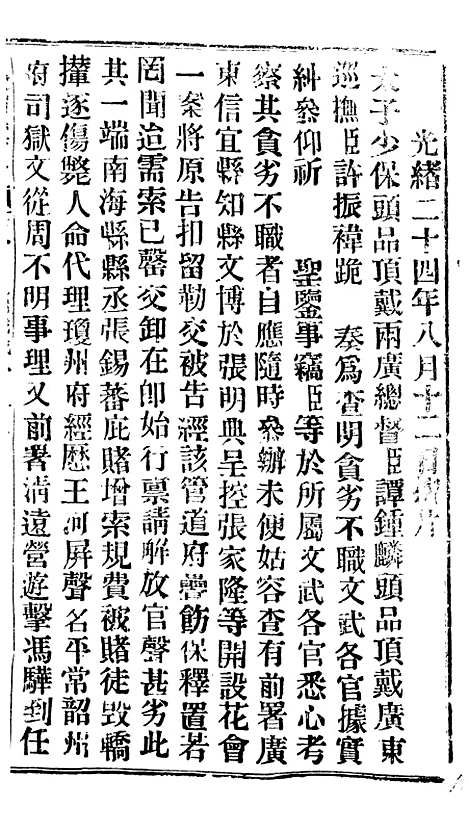 光緒二十四年八月十二日京片
太子少保頭品頂戴兩廣總督臣譚鍾麟頭品頂戴廣東
巡撫臣許振褘跪　奏為查明貪劣不職文武各官據實
糾叅仰祈　聖鑒事竊臣等於所屬文武各官悉心考
察其貪劣不職者自應隨時叅辦未便姑容查有前署廣
東信宜縣知縣文博於張明典呈控張家隆等開設花會
一案將原告扣留勒交被告經該管道府嚳飭保釋置若
罔聞迨需索已罄交卸在卽始行禀請解放官聲甚劣此
其一端南海縣縣丞張錫蕃庇賭增索規費被賭徒毀轎
攆逐傷斃人命代理瓊州府經歷王河屏聲名平常韶州
府司獄文從周不明事理又前署清遠營遊擊馮驊到任